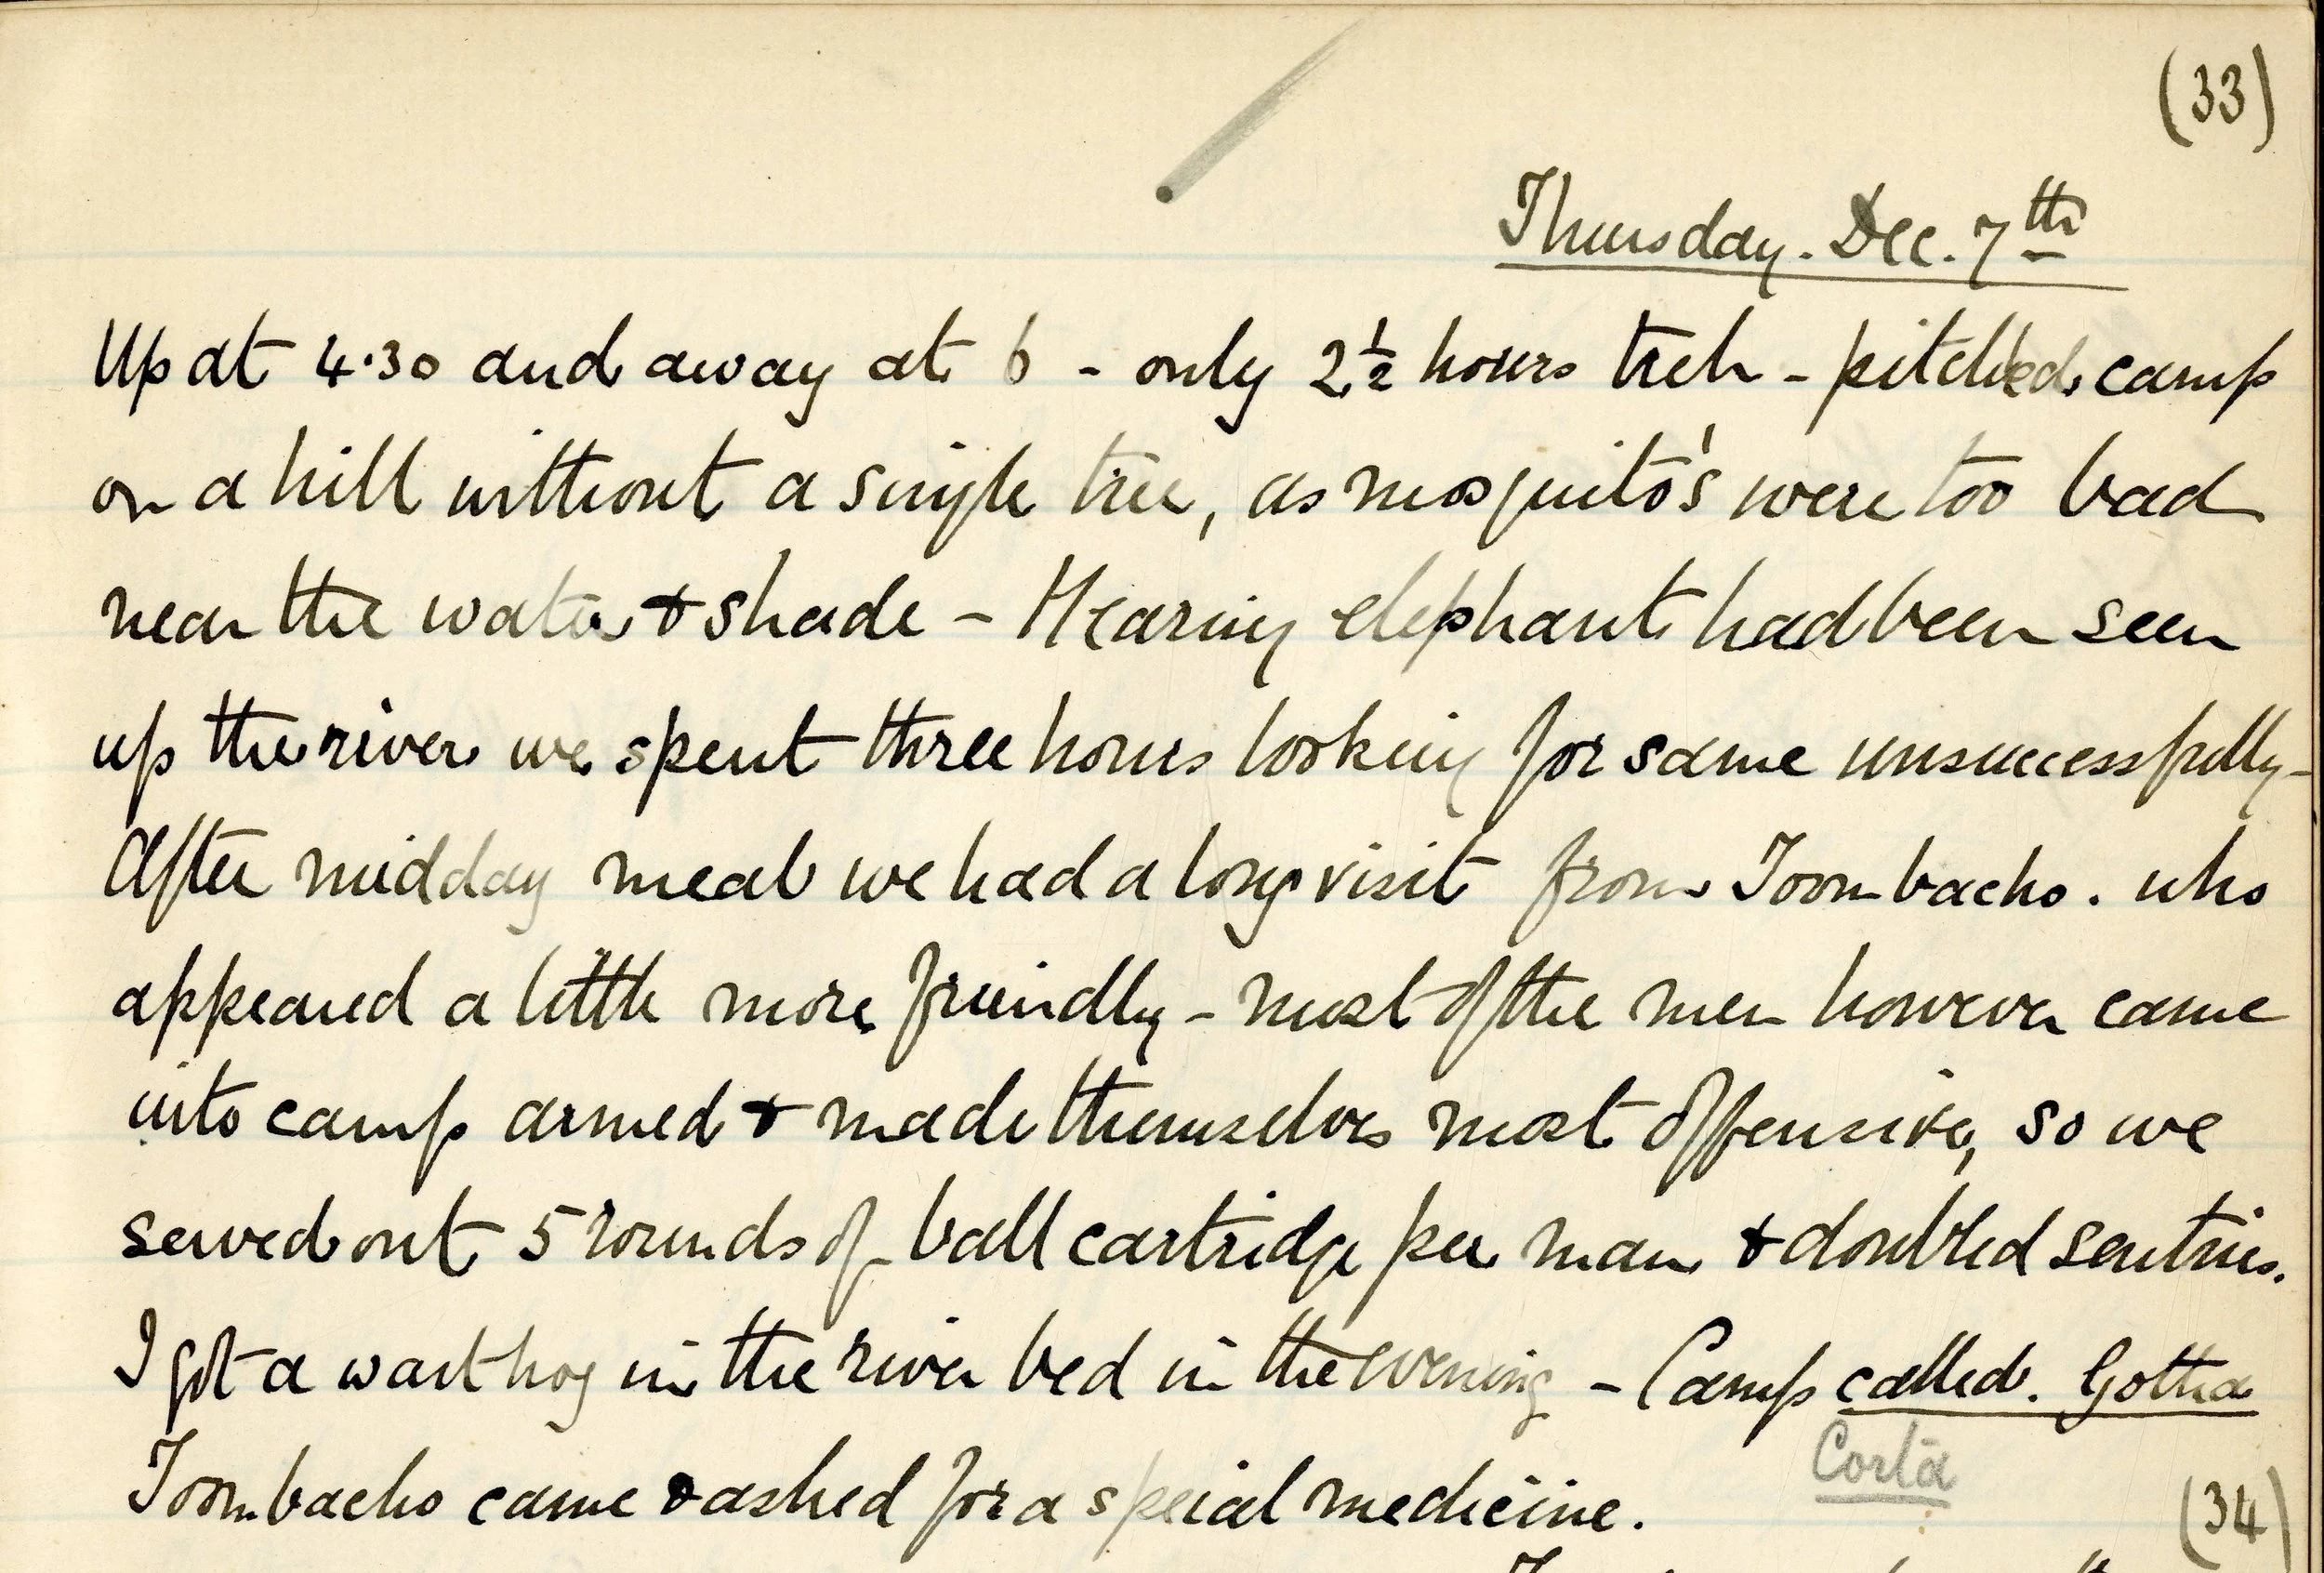 (33)
Thursday. Dec. 7th
Up at 4.30 and away at 6 - only 2½ hours trek - pitched camp
on a hill without a single tree, as mosquito's were too bad
near the water & shade - Hearing elephant had been seen
up the river we spent three hours looking for same unsuccessfully -
After midday meal we had a long visit from Toombacho. who
appeared a little more friendly - most of the men however came
into camp armed & made themselves most offensive, so we
served out 5 rounds of ball cartridge per man & doubled sentries.
I got a wart hog in the river bed in the evening - Camp called. Gotha
Corta
Toombacho came & asked for a special medicine.
(34)